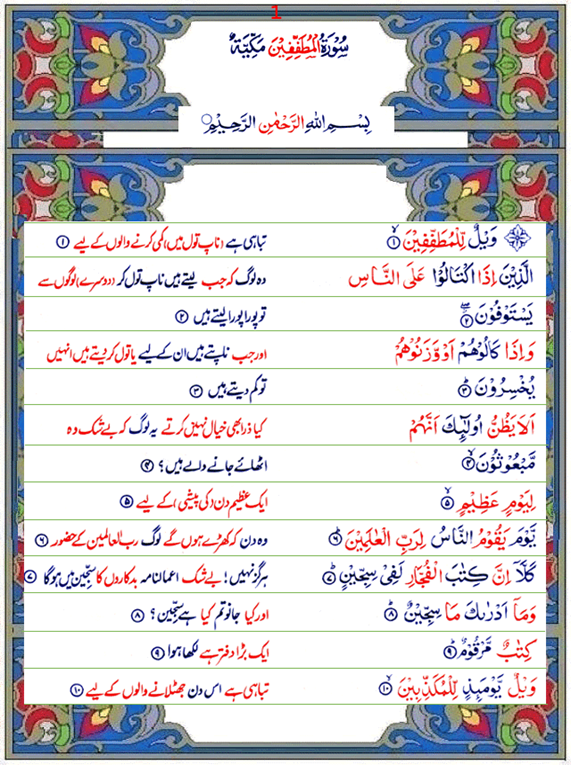 1
سُوْرَةُ الْمُطَفِّفِيْنَ مَكِّيَّةٌ
بِسْمِ اللّٰهِ الرَّحْمٰنِ الرَّحِيْمِ
وَيْلٌ لِّلْمُطَفِّفِيْنَ ۙ﴿۱﴾ تباہی ہے (ناپ تول میں) کمی کرنے والوں کے لیے ﴿۱﴾
الَّذِيْنَ اِذَا اكْتَالُوْا عَلَى النَّاسِ وہ لوگ کہ جب لیتے ہیں ناپ تول کر (دوسرے) لوگوں سے
يَسْتَوْفُوْنَ ۖ﴿۲﴾ تو پورا پورا لیتے ہیں ﴿۲﴾
وَاِذَا كَالُوْهُمْ اَوْ وَّزَنُوْهُمْ اور جب ناپتے ہیں ان کے لیے یا تول کر دیتے ہیں انہیں
يُخْسِرُوْنَ ؕ﴿۳﴾ تو کم دیتے ہیں ﴿۳﴾
اَلَا يَظُنُّ اُولٰٓئِكَ اَنَّهُمْ کیا ذرا بھی خیال نہیں کرتے یہ لوگ کہ بے شک وہ
مَّبْعُوْثُوْنَ ۙ﴿۴﴾ اٹھائے جانے والے ہیں؟ ﴿۴﴾
لِيَوْمٍ عَظِيْمٍ ۙ﴿۵﴾ ایک عظیم دن (کی پیشی) کے لیے ﴿۵﴾
يَّوْمَ يَقُوْمُ النَّاسُ لِرَبِّ الْعٰلَمِيْنَ ؕ﴿۶﴾ وہ دن کہ کھڑے ہوں گے لوگ رب العالمین کے حضور ﴿۶﴾
كَلَّاۤ اِنَّ كِتٰبَ الْفُجَّارِ لَفِيْ سِجِّيْنٍ ؕ﴿۷﴾ ہرگز نہیں! بے شک اعمالنامہ بدکاروں کا سجّین میں ہوگا ﴿۷﴾
وَمَاۤ اَدْرٰىكَ مَا سِجِّيْنٌ ؕ﴿۸﴾ اور کیا جانو تم کیا ہے سجّین؟ ﴿۸﴾
كِتٰبٌ مَّرْقُوْمٌ ؕ﴿۹﴾ ایک بڑا دفتر ہے لکھا ہوا ﴿۹﴾
وَيْلٌ يَّوْمَئِذٍ لِّلْمُكَذِّبِيْنَ ۙ﴿۱۰﴾ تباہی ہے اس دن جھٹلانے والوں کے لیے ﴿۱۰﴾